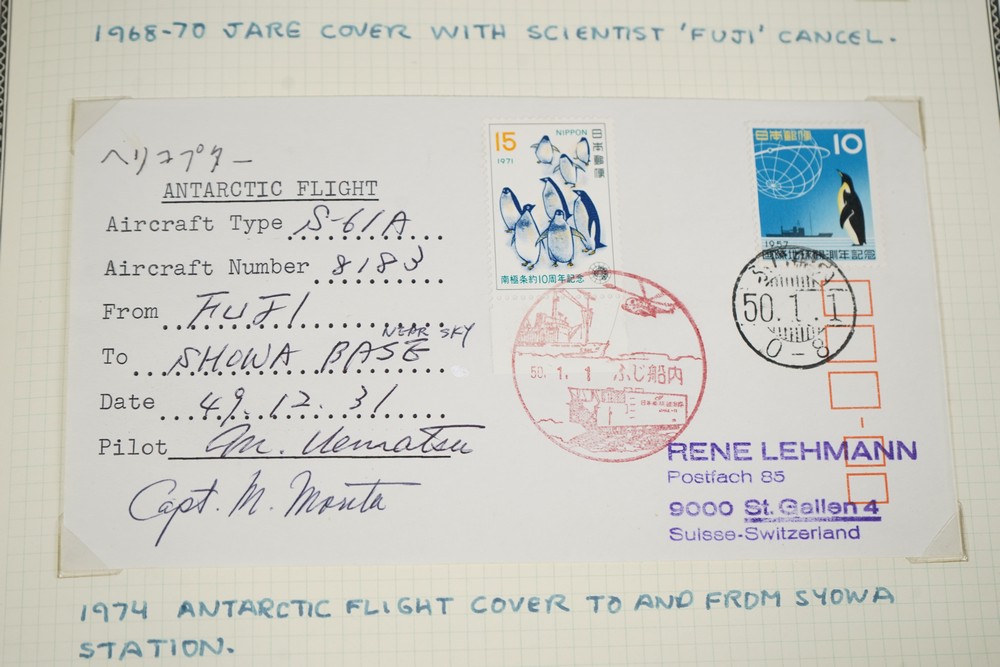 1968-70 JARE COVER WITH SCIENTIST 'FUJI' CANCEL.
ヘリコプター
ANTARCTIC FLIGHT
Aircraft Type S-61A
Aircraft Number 8183
From FUJI
NEAR SKY
To SHOWA BASE
Date 49.12.31
Pilot M. Uematsu
Capt. M. Morita
15 NIPPON
1971
日本郵便
南極条約10周年記念
日本郵便 10
1957
国際地球観測年記念
50.1.1
0-8
50.1.1 ふじ船内
RENE LEHMANN
Postfach 85
9000 St. Gallen 4
Suisse-Switzerland
1974 ANTARCTIC FLIGHT COVER TO AND FROM SYOWA
STATION.